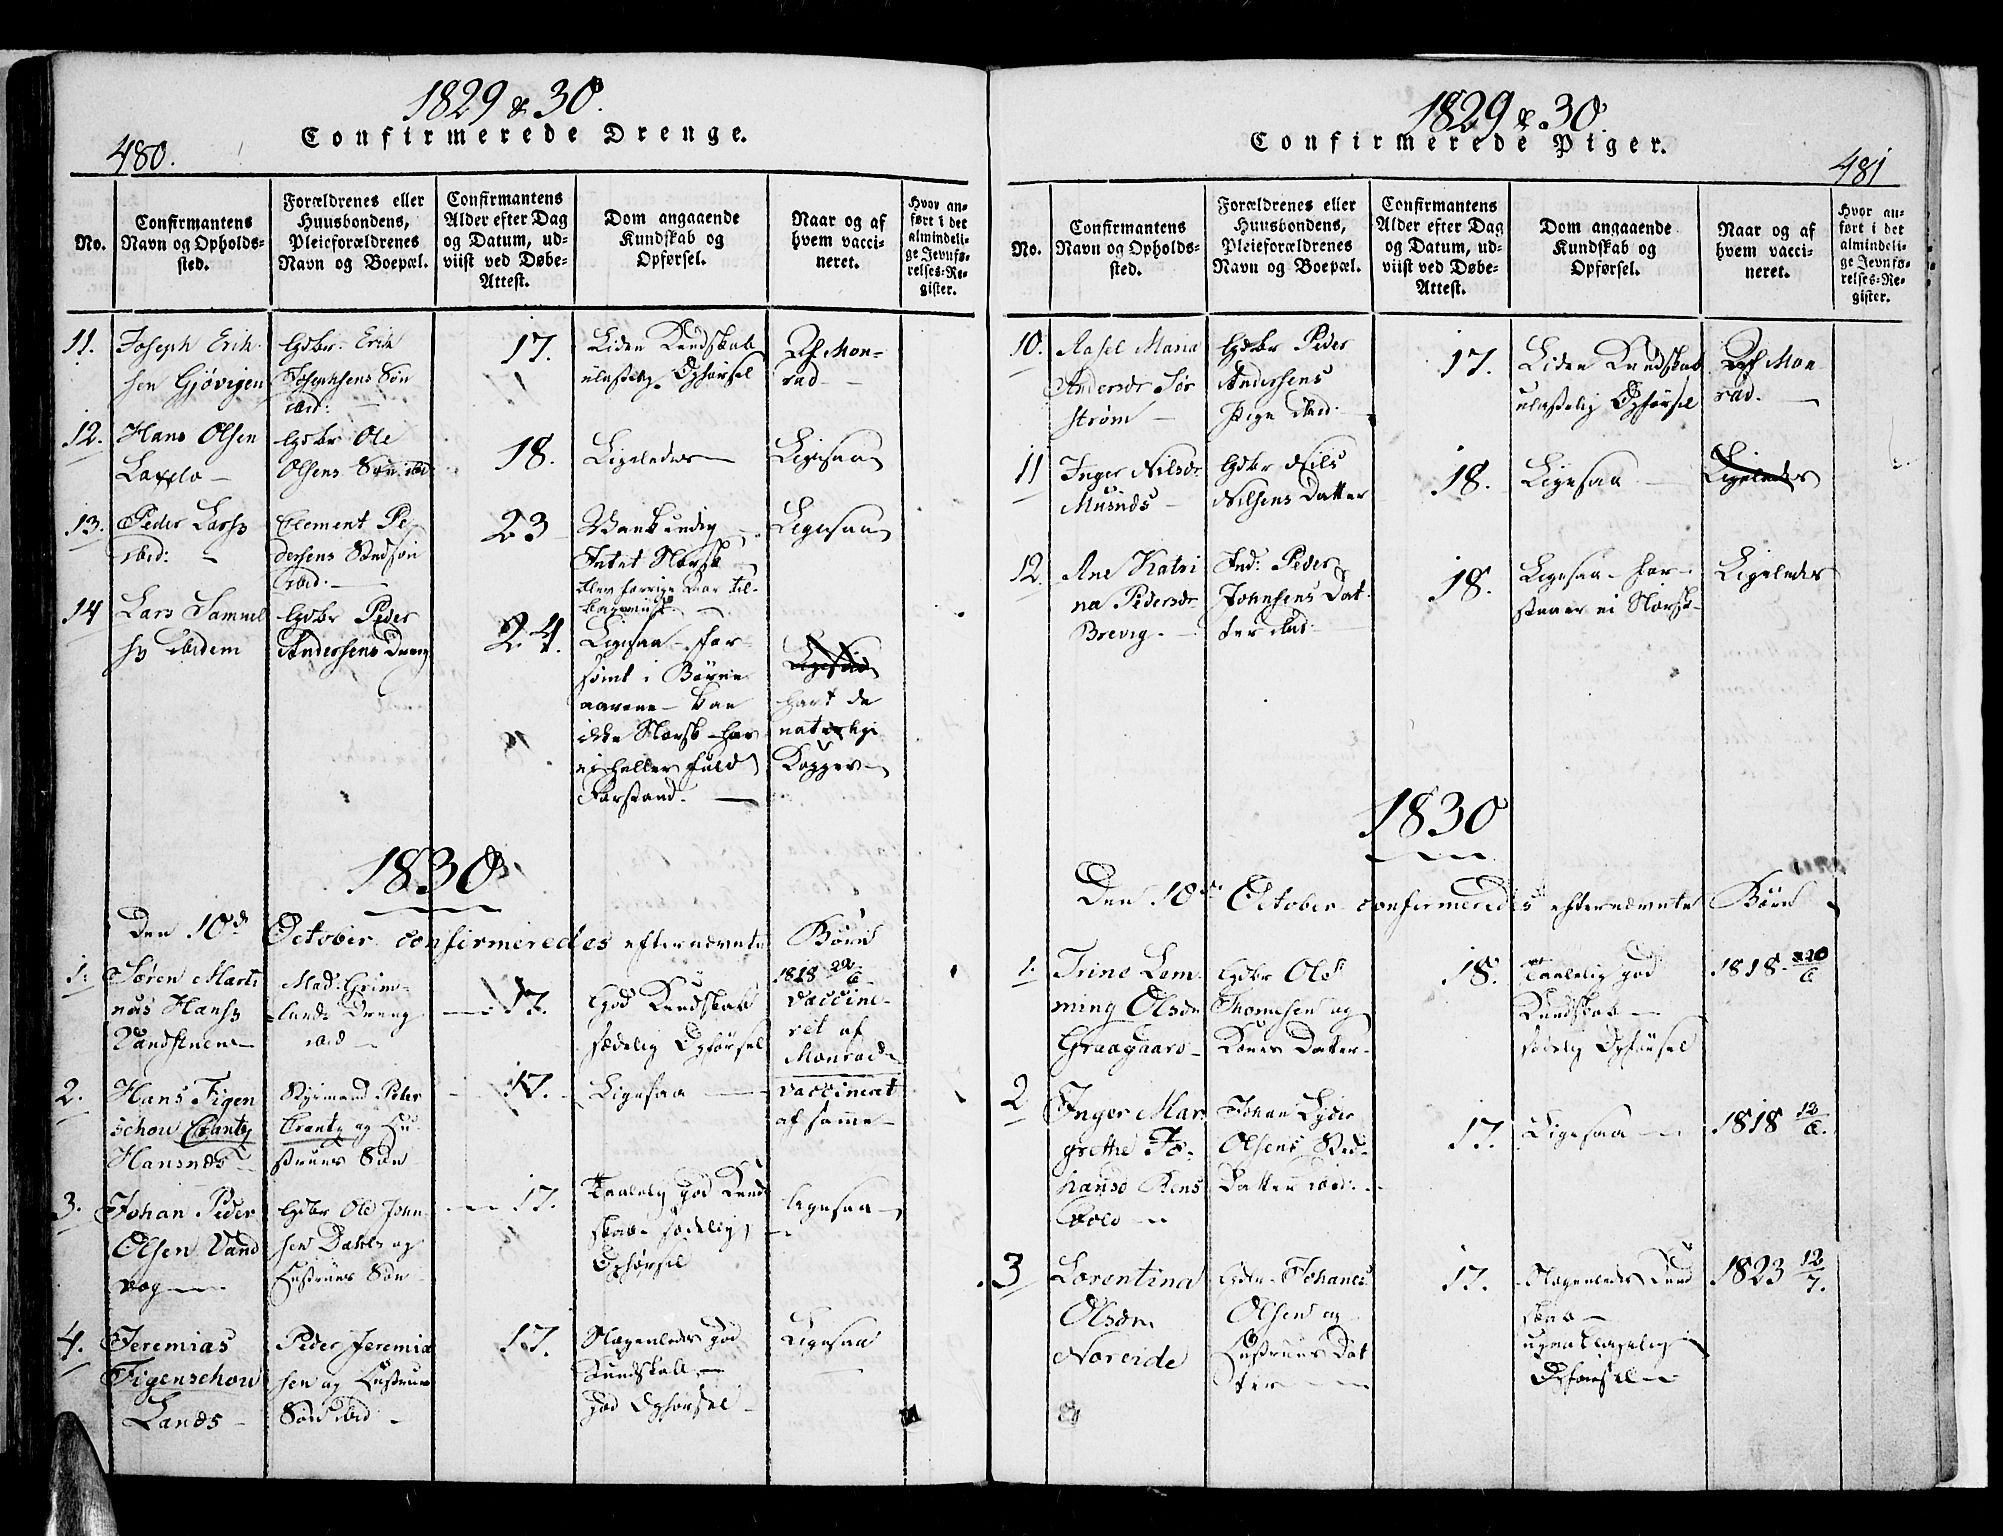 1829 & 30.
480.
Confirmerede Drenge.
No.
Confirmantens
Navn og Opholds-
sted.
Forældrenes eller
Huusbondens,
Pleieforældrenes
Navn og Boepæl.
Confirmantens
Alder efter Dag
og Datum, ud-
viist ved Døbe-
Attest.
Dom angaaende
Kundskab og
Opførsel.
Naar og af
hvem vacci-
neret.
Hvor an-
ført i det
almindeli-
ge Jevnfø-
relses-Re-
gister.
11.
Joseph Erik
sen Gjøvigen
Gdbr. Erik
Josephsens Søn
ibid:
17.
Liden Kundskab
ulastelig Opførsel
Af Mon-
rad
12.
Hans Olsen
Gdbr Ole
Olsens Søn ibid
18.
Ligeledes
Ligesaa
13.
Peder Larss
ibid:
Clement Pe
dersens Stedsøn
ibid.
23
Vankundig
Intet Norsk
blev forrige Aar til-
bageviist
Ligesaa
14
Lars Samuel
ss ibidem
Gdbr Peder
Andersens Dreng
24.
Ligesaa for-
sømt i Børne
aarene kan
ikke Norsk har
ei heller fuld
Forstand.
Ligesaa
havt de
naturlige
Kopper
1830
Den 10de October confirmeredes efternævnte Børn
1.
Søren Marti
nus Hanss
Mad. Grim-
lunds Dreng
ibid
17.
God Kundskab
sædelig Opførsel
1818
vaccine-
ret af
Monrad
2.
Hans Figen
schou Crantz
Hansnæs
Styrmand Peter
Crantz og Hu-
struens Søn
17.
Ligesaa
vaccineret
af samme
3.
Johan Peder
Olsen Vand
vog
Gdbr Ole John-
sen Dahls og
Hustrues Søn
17.
Taalelig god Kund
skab sædelig
Opførsel
Ligesaa
4.
Jeremias
Figenschou
Lanæs
Peder Jeremia
sen og Hustrues
Søn ibid
17.
Nogenledes god
Kundskab
god Opførsel
Ligesaa
1829 & 30.
481
Confirmerede Piger.
No.
Confirmantens
Navn og Opholds-
sted.
Forældrenes eller
Huusbondens,
Pleieforældrenes
Navn og Boepæl.
Confirmantens
Alder efter Dag
og Datum, ud-
viist ved Døbe-
Attest.
Dom angaaende
Kundskab og
Opførsel.
Naar og af
hvem vacci-
neret.
Hvor an-
ført i det
almindeli-
ge Jevnfø-
relses-Re-
gister.
10.
Aasel Maria
Andersdr Sør
strøm
Gdbr Peder
Andersens
Pige ibid.
17.
Liden Kundskab
ulastelig Opførsel
Af Mon
rad.
11
Inger Nilsdr
Musnæs
Gdbr Nils
Nilsens Datter
18.
Ligesaa
Ligeledes
12
Ane Katri
na Pedersdr
Brevig.
Ind: Peder
Johnsens Dat
ter ibid.
18.
Ligesaa for
staaer ei Norsk
Ligeledes
1830
Den 10de October confirmeredes efternævnte Børn
1.
Trine Lem
ming Olsdr
Graagaard
Gdbr Ole
Thomesen og
Kones Datter
18.
Taalelig god
Kundskab
sædelig Opførsel
1818.
2
Inger Mar
grethe Jo-
hansd Rens
vold
Johan Lyder
Olsens Sted-
Datter ibid:
17.
Ligesaa
1818 12/6.
3
Lorentina
Olsdr
Noreide
Johanes
Olsens og
Hustrues Dat
ter
17.
Nogenledes Kund
skab
upaaklagelig
Opførsel
1823 12/7.